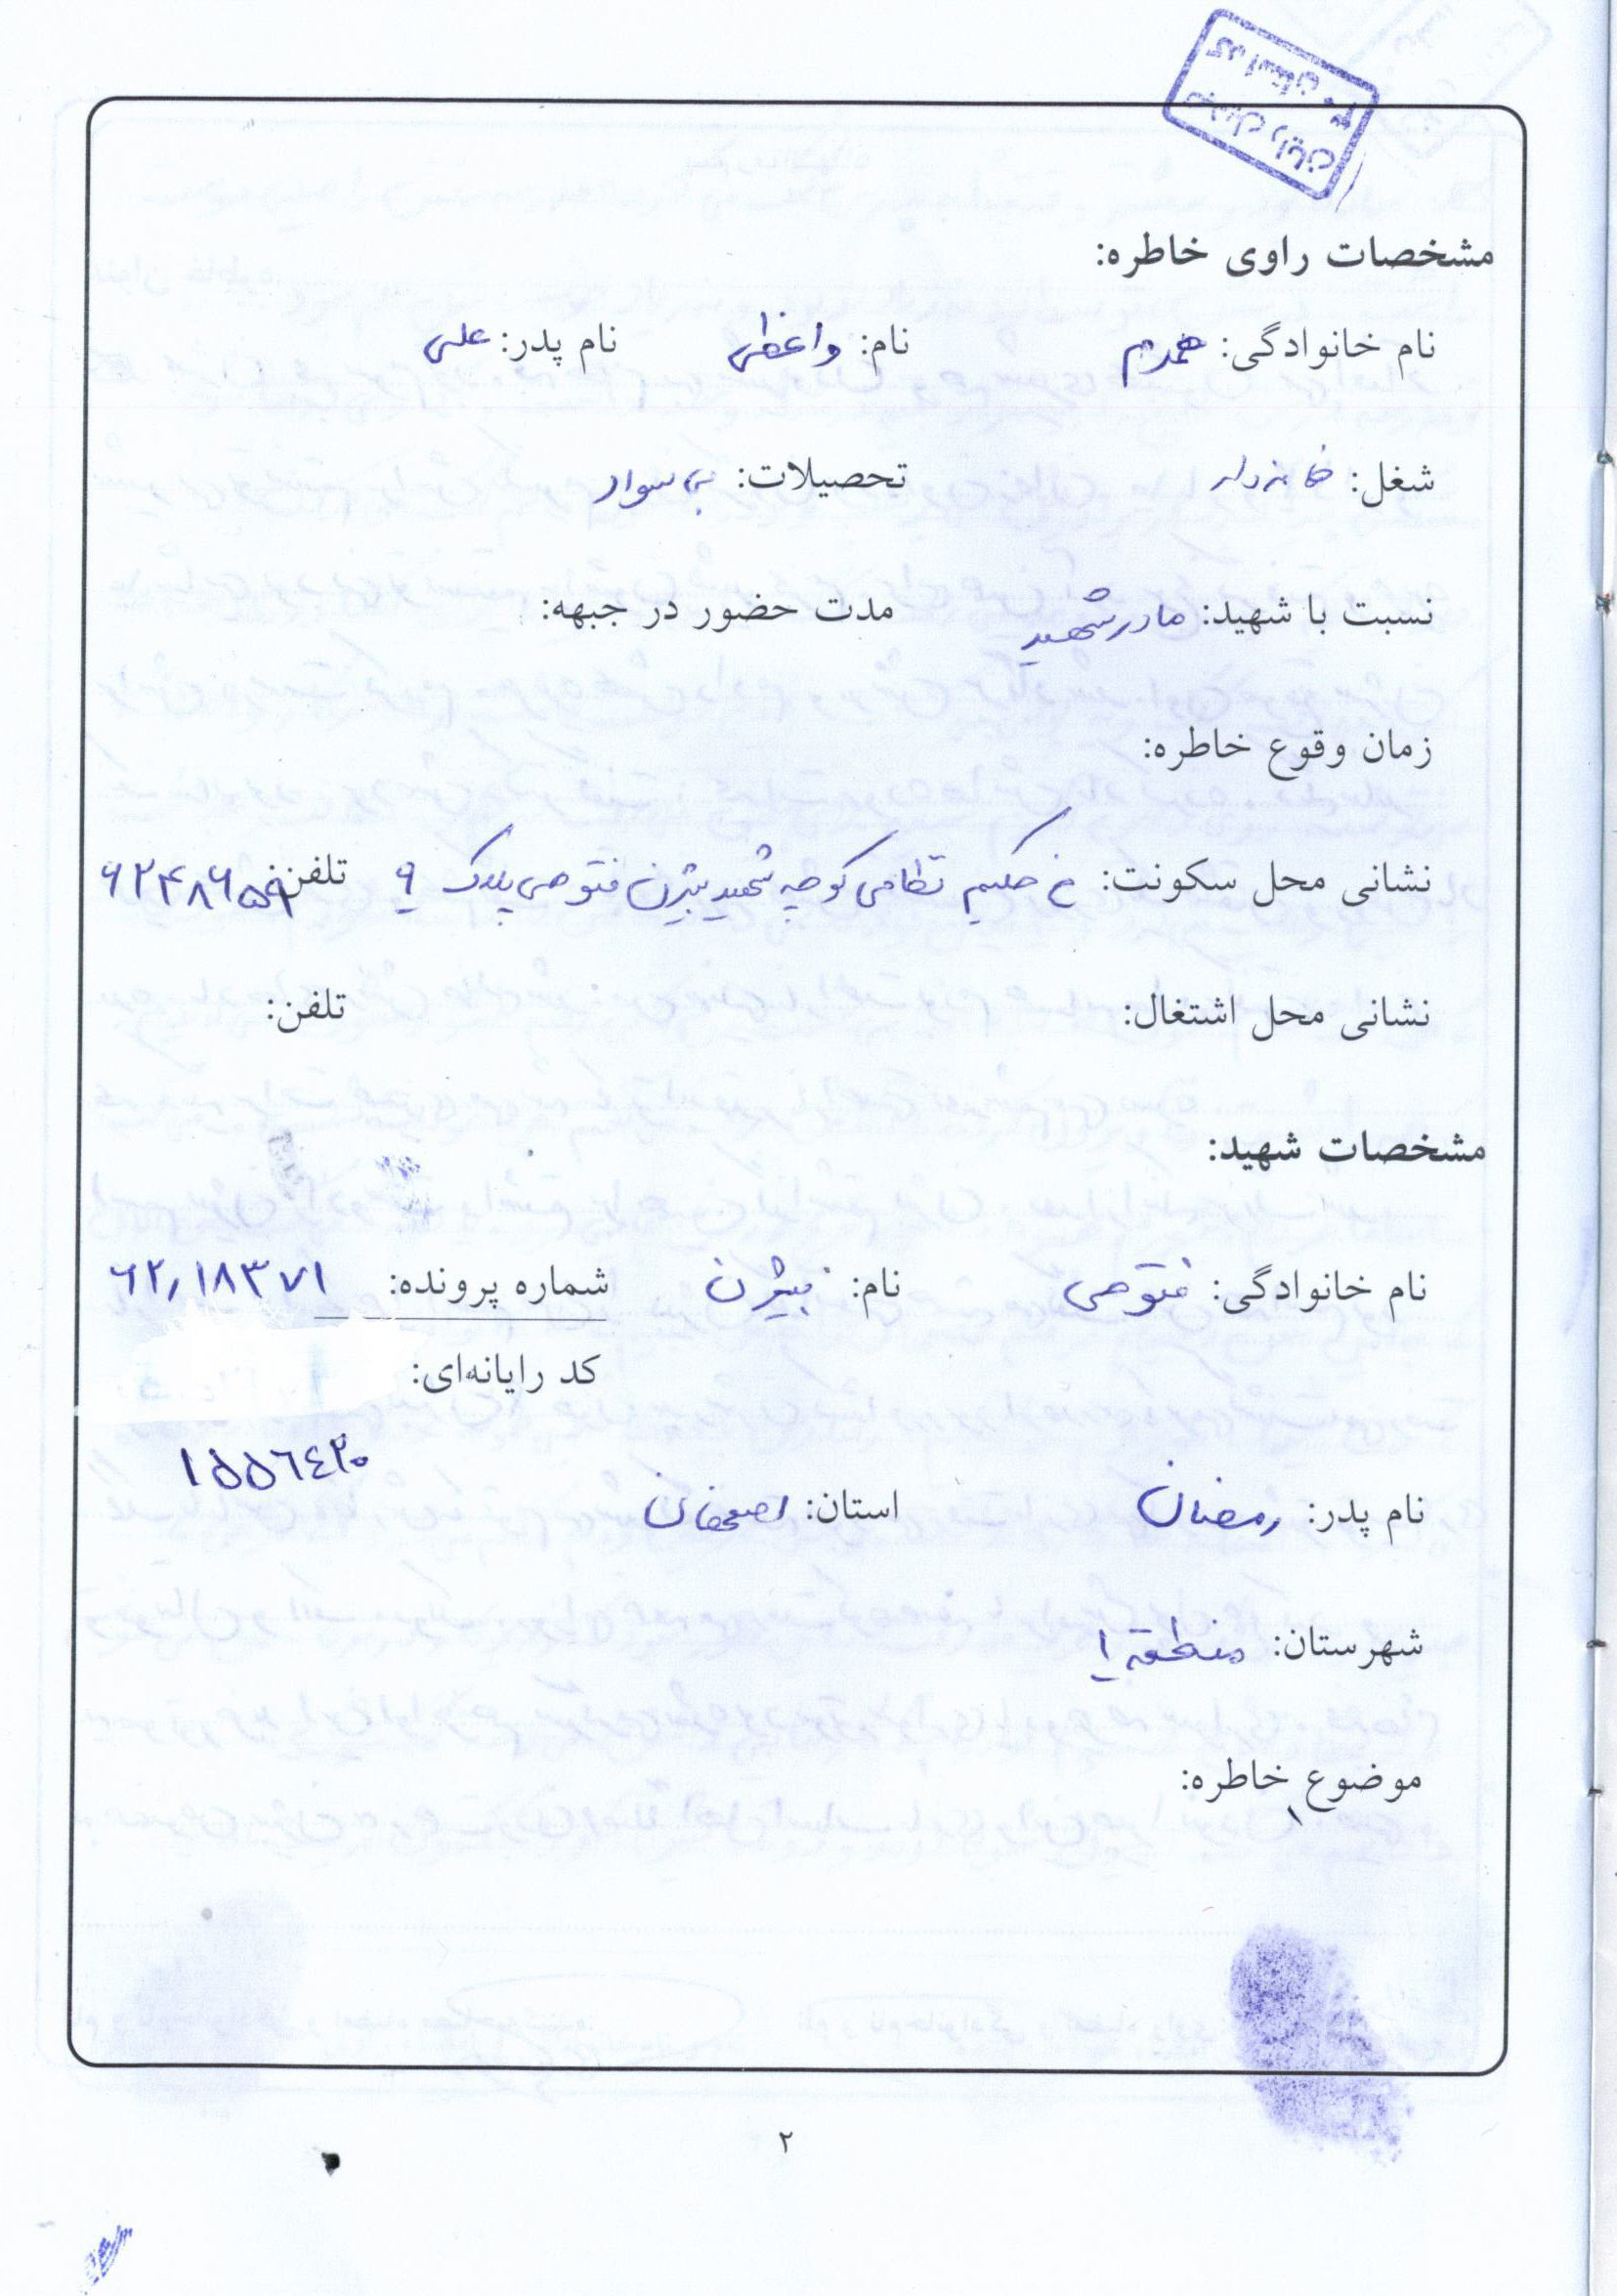 مشخصات راوی خاطره:
نام خانوادگی: همدم نام: واعظی نام پدر: علی
شغل: خانه دار تحصیلات: بی سواد
نسبت با شهید: مادر شهید مدت حضور در جبهه:
زمان وقوع خاطره:
نشانی محل سکونت: خ حکیم نظامی کوچه شهید بیژن فتوحی پلاک ۹ تلفن: ۶۲۴۸۶۵۹
نشانی محل اشتغال: تلفن:
مشخصات شهید:
نام خانوادگی: فتوحی نام: بیژن شماره پرونده: ۶۲,۱۸۳۷۱
کد رایانه‌ای:
۱۵۵۶۴۲۰
نام پدر: رمضان استان: اصفهان
شهرستان: منطقه ۱
موضوع خاطره:
۲